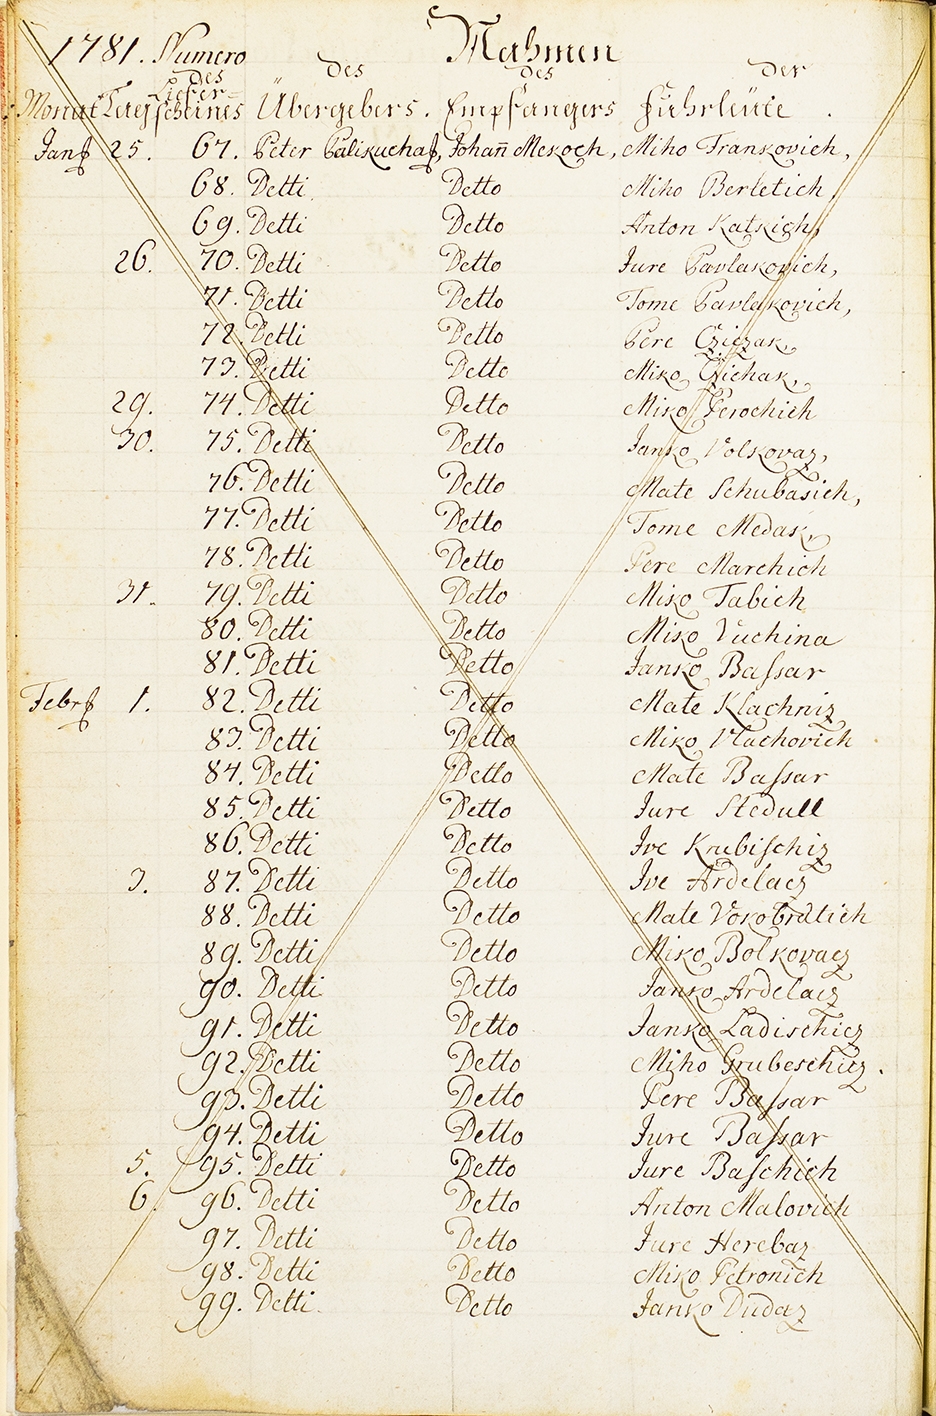 1781. Numero Nahmen
des des des der
Liefer=
Monat Tag scheines Übergebers. Empfangers Fuhrleüte.
25. 67. Peter Johañ Meskoch, Miho Frankovich,
68. Detti Detto Miho Berletich,
69. Detti Detto Anton Katskich,
26. 70. Detti Detto Jure Pavlakovich,
71. Detti Detto Tome Pavlakovich,
72. Detti Detto Pere Cziczak,
73. Detti Detto Miko Czichak,
29. 74. Detti Detto Miko Perochich
30. 75. Detti Detto Janko Volkovaz,
76. Detti Detto Mate Schubasich,
77. Detti Detto Tome Medak,
78. Detti Detto Pere Marchich
31. 79. Detti Detto Miko Tabich
80. Detti Detto Miko Vuchina
81. Detti Detto Janko Baſsar
1. 82. Detti Detto Mate Klachniz
83. Detti Detto Miko Vlachovich
84. Detti Detto Mate Baſsar
85. Detti Detto Jure Stedull
86. Detti Detto Ive Krubiſchiz
3. 87. Detti Detto Ive Ardelacz
88. Detti Detto Mate Vokobratich
89. Detti Detto Miko Bolkovacz
90. Detti Detto Janko Ardelacz
91. Detti Detto Janko Ladischicz
92. Detti Detto Miho Grubeschicz.
93. Detti Detto Pere Baſsar
94. Detti Detto Jure Baſsar
5. 95. Detti Detto Jure Baſchich
6. 96. Detti Detto Anton Malovich
97. Detti Detto Jure Herebaz
98. Detti Detto Miko Petronich
99. Detti Detto Janko Dudaz